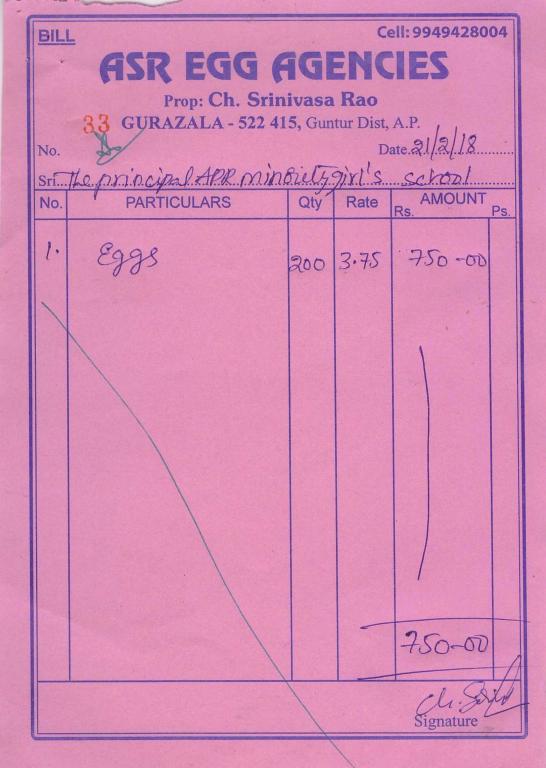 BILL
Cell: 9949428004
ASR EGG AGENCIES
Prop: Ch. Srinivasa Rao
33 GURAZALA - 522 415, Guntur Dist, A.P.
No. Date 21/2/18
Sri The principal APR minority girl's school
No. PARTICULARS Qty Rate AMOUNT
Rs. Ps.
1. Eggs 200 3.75 750-00
750-00
Signature